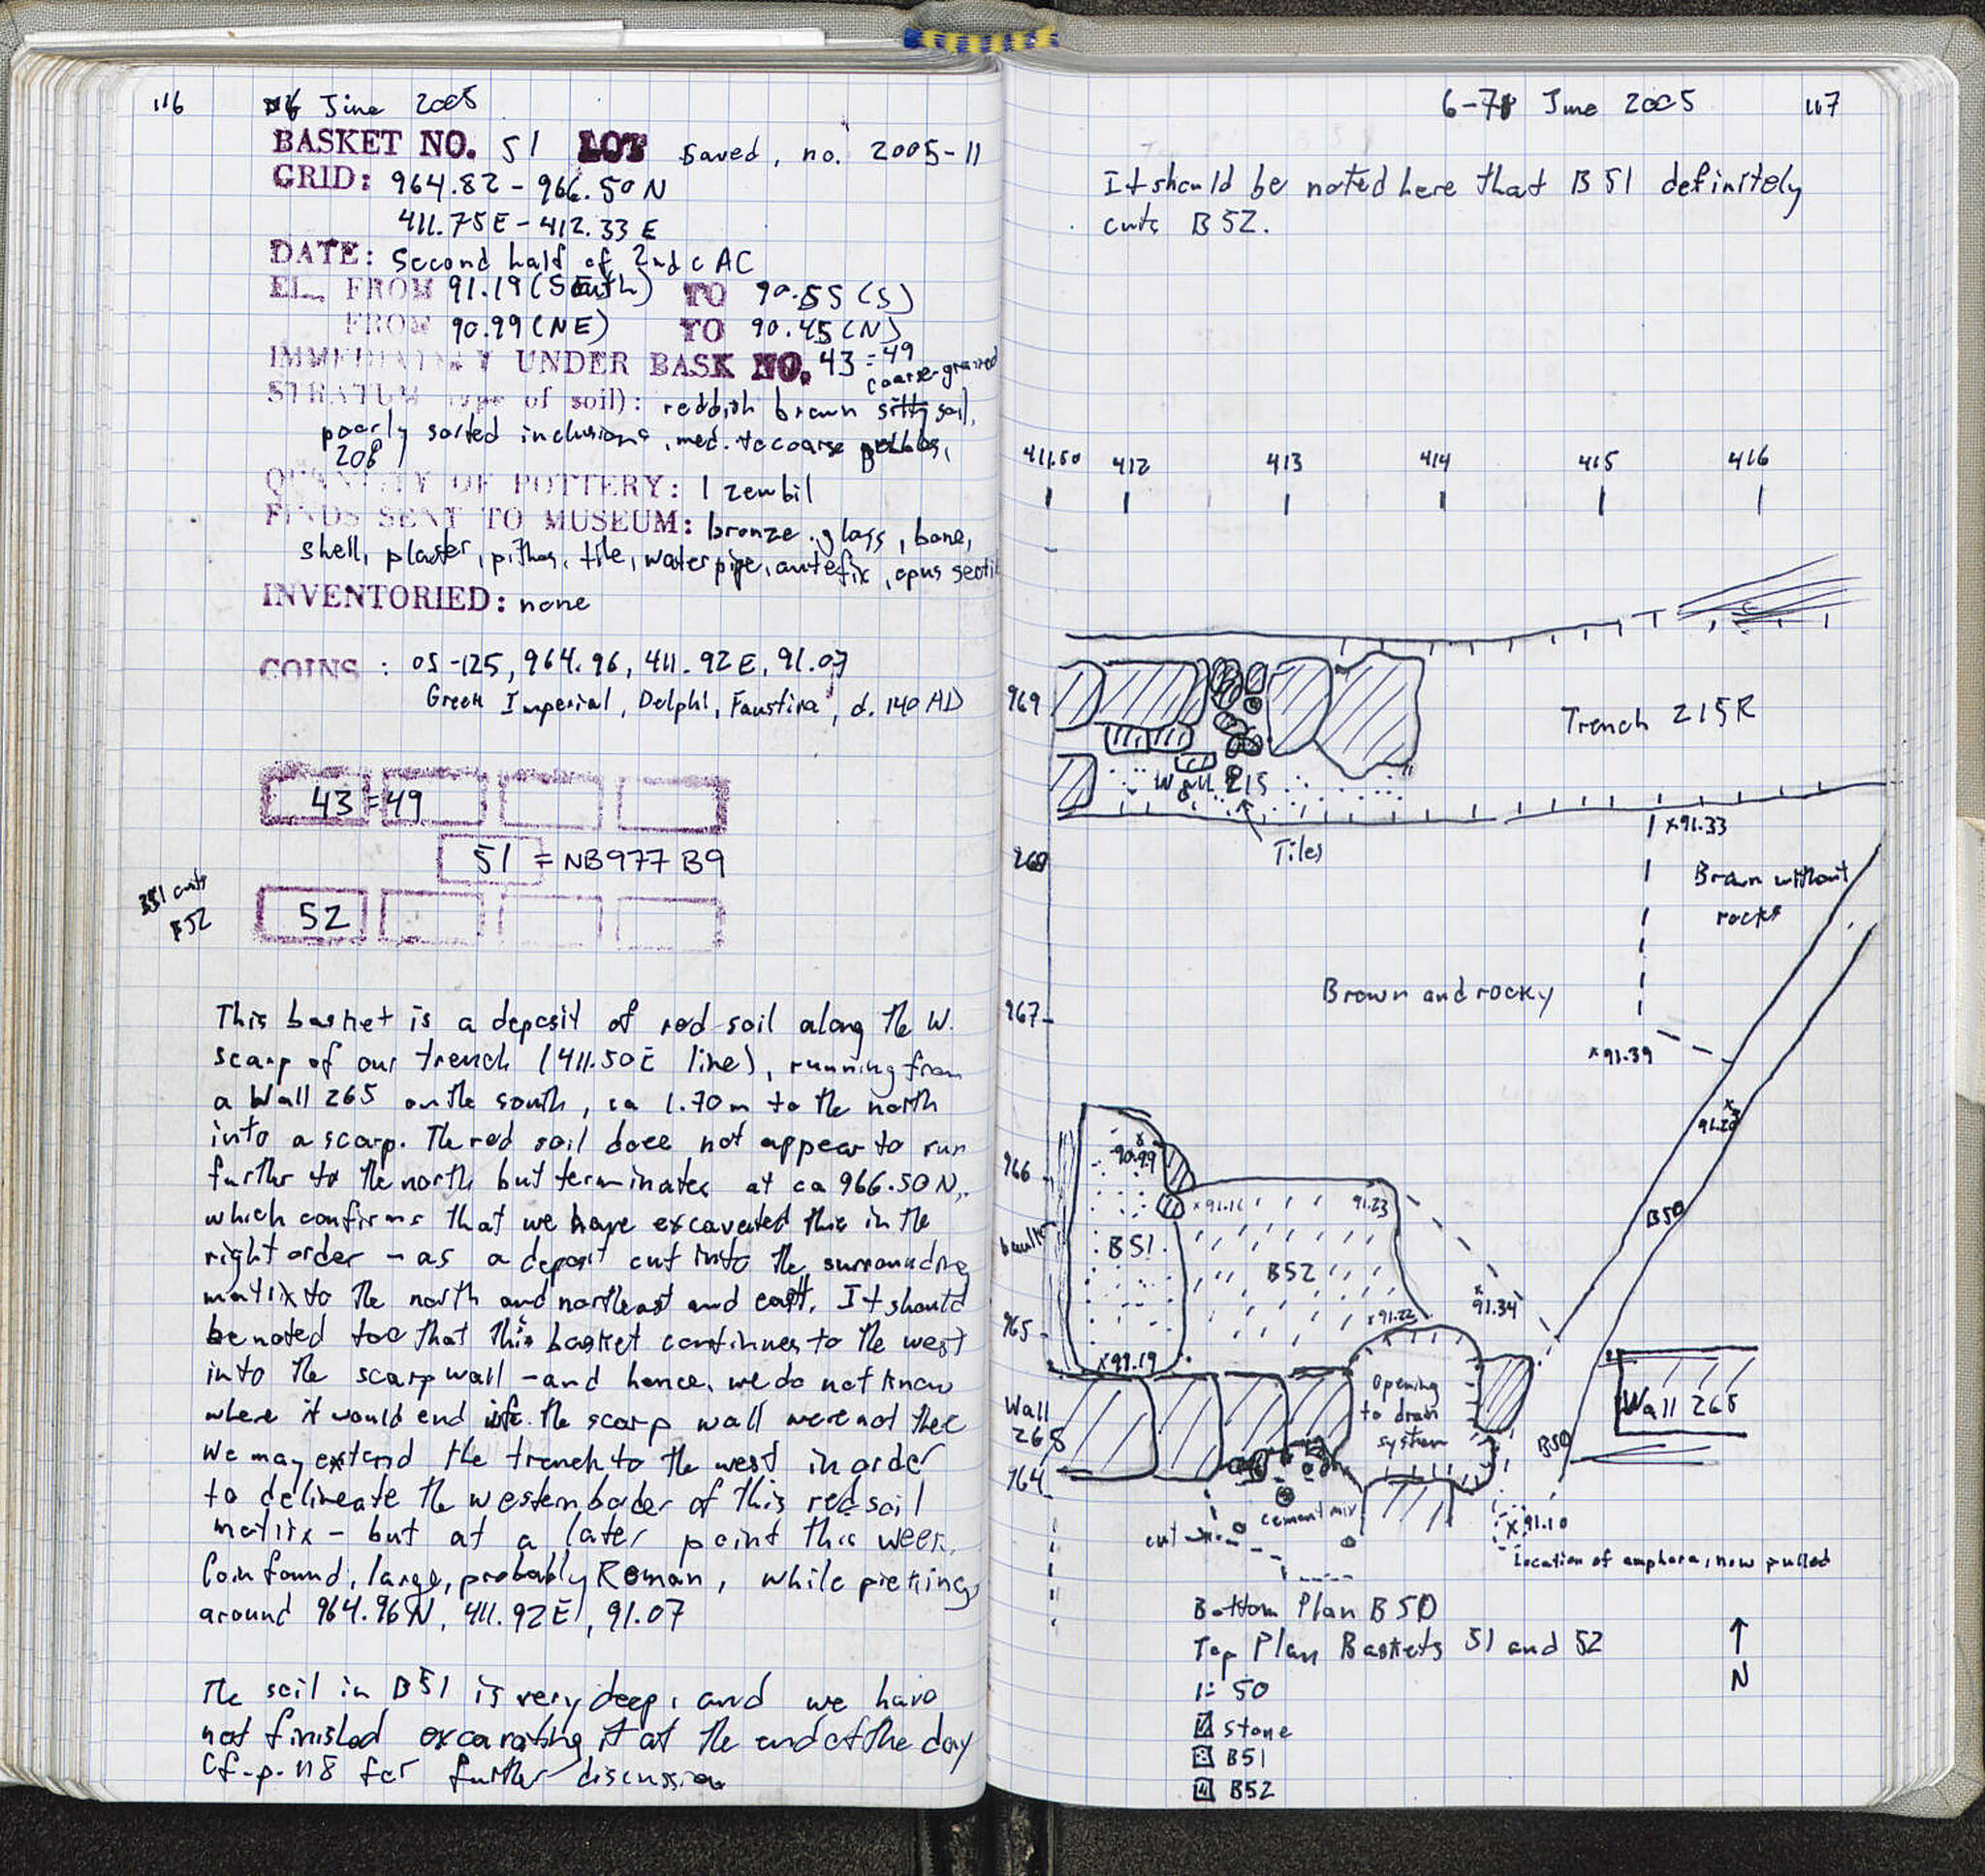 116
6 June 2005
BASKET NO. 51 LOT Saved, no. 2005-11
GRID: 964.82 - 966.50 N
411.75E - 412.33 E
DATE: Second half of 2nd c AC
EL. FROM 91.19 (South) TO 90.55 (S)
FROM 90.99 (NE) TO 90.45 (N)
IMMEDIATELY UNDER BASK NO. 43 = 49
STRATUM (type of soil): reddish brown coarse-grained soil,
poorly sorted inclusions, med. to coarse pebbles,
20%
QUANTITY OF POTTERY: 1 zembil
FINDS SENT TO MUSEUM: bronze, glass, bone,
shell, plaster, pithos, tile, water pipe, antefix, opus sectile
INVENTORIED: none
COINS : 05-125, 964.96, 411.92 E, 91.07
Greek Imperial, Delphi, Faustina, d. 140 AD
43 = 49
51 = NB977 B9
B51 cuts
B52
52
This basket is a deposit of red soil along the W.
scarp of our trench (411.50E line), running from
a Wall 265 on the south, ca 1.70m to the north
into a scarp. The red soil does not appear to run
further to the north but terminates at ca 966.50 N,
which confirms that we have excavated this in the
right order - as a deposit cut into the surrounding
matrix to the north and northeast and east. It should
be noted too that this basket continues to the west
into the scarp wall - and hence, we do not know
where it would end if the scarp wall were not there
We may extend the trench to the west in order
to delineate the western border of this red soil
matrix - but at a later point this week.
Coin found, large, probably Roman, while picking
around 964.96 N, 411.92 E, 91.07
The soil in B51 is very deep, and we have
not finished excavating it at the end of the day
Cf. p. 118 for further discussion
6-7 June 2005
117
It should be noted here that B 51 definitely
cuts B 52.
411.50 412 413 414 415 416
969
Trench 215R
Wall 215
Tiles
x91.33
968
Brown without
rocks
Brown and rocky
967
x91.39
91.20
966
90.99
x91.16 91.23
B50
baulk
B51
B52
x91.22
x91.34
965
x91.19
Wall
265
Opening
to drain
system
Wall 265
B50
964
cement mix
cut
x91.10
Location of amphora, now pulled
Bottom Plan B 50
Top Plan Baskets 51 and 52
1:50
N
stone
B51
B52